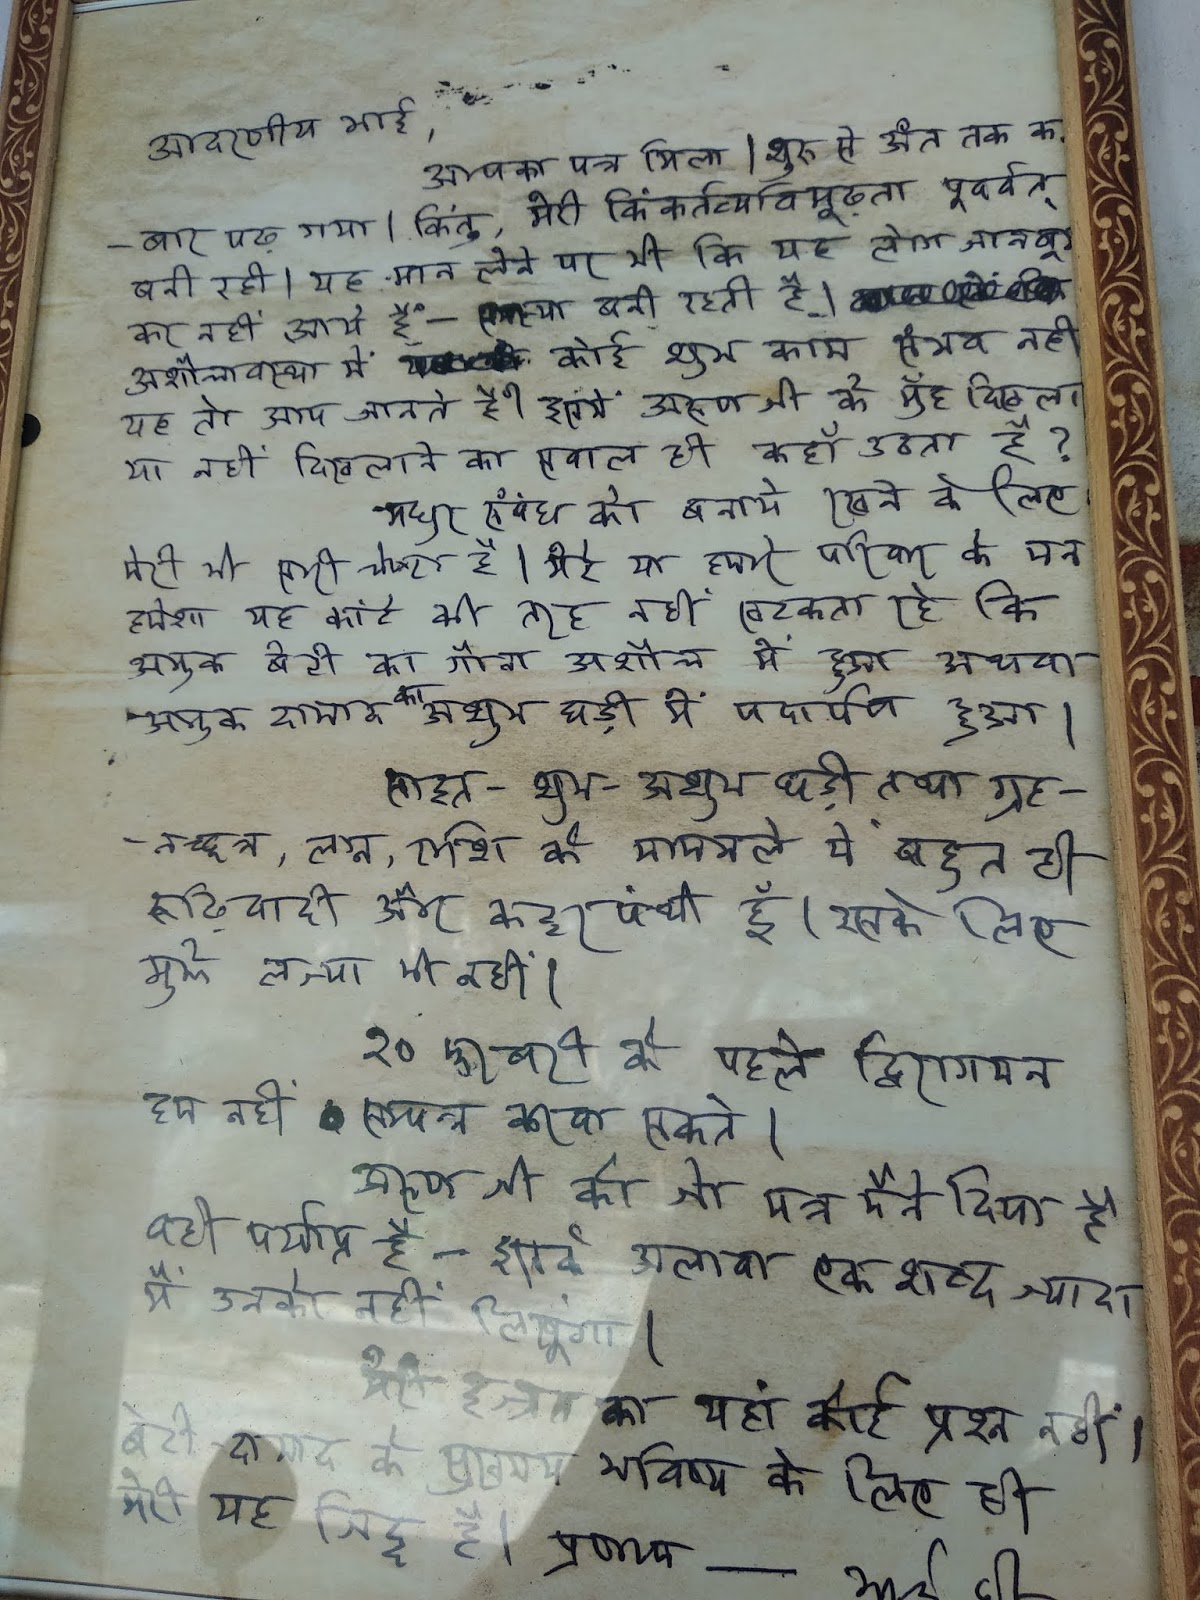 आदरणीय भाई,
आपका पत्र मिला। शुरू से अंत तक क
-बार पढ़ गया। किंतु, मेरी किंकर्तव्यविमूढ़ता पूर्ववत्
बनी रही। यह मान लेने पर भी कि यह लोग जानबू
कर नहीं आये हैं - समस्या बनी रहती है।
अशौचावस्था में कोई शुभ काम संभव नहीं
यह तो आप जानते हैं। इसमें अरुण जी के मुँह दिखला
या नहीं दिखलाने का सवाल ही कहाँ उठता है?
मधुर संबंध को बनाये रखने के लिए
मेरी भी सारी चेष्टा है। मेरे या हमारे परिवार के मन
हमेशा यह कांटे की तरह नहीं खटकता रहे कि
अमुक बेटी का गौना अशौच में हुआ अथवा
अमुक दामाद का अशुभ घड़ी में पदार्पण हुआ।
साइत - शुभ - अशुभ घड़ी तथा ग्रह-
-नच्छत्र, लग्न, राशि के मामले में बहुत ही
रूढ़िवादी और कट्टरपंथी हूँ। इसके लिए
मुझे लज्जा भी नहीं।
२० फरवरी के पहले द्विरागमन
हम नहीं सम्पन्न करवा सकते।
अरुण जी को जो पत्र मैंने दिया है
वही पर्याप्त है - इसके अलावा एक शब्द ज्यादा
मैं उनको नहीं लिखूंगा।
मेरी इज्जत का यहां कोई प्रश्न नहीं।
बेटी-दामाद के सुखमय भविष्य के लिए ही
मेरी यह जिद्द है। प्रणाम —